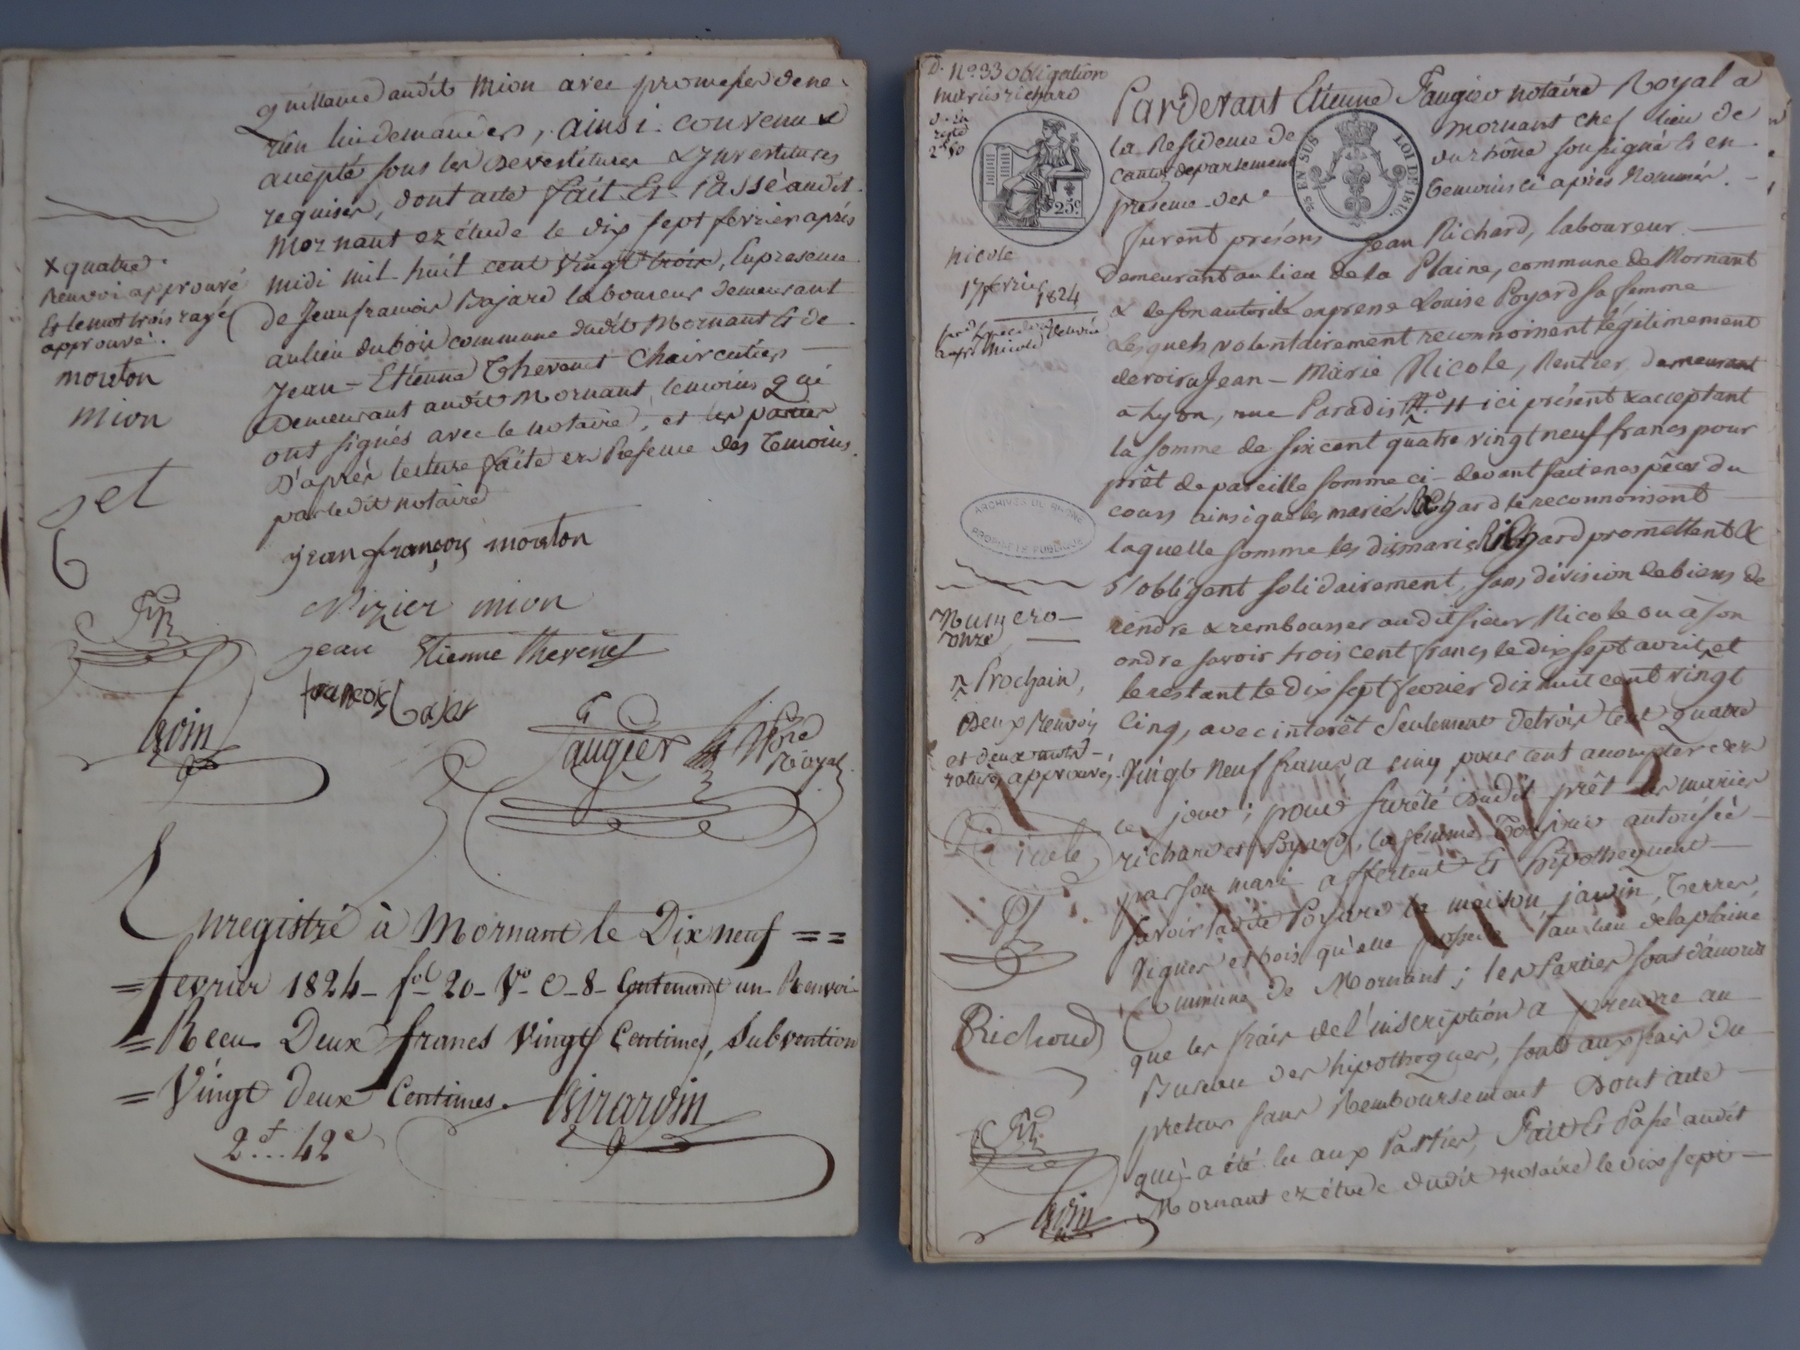 quittance audit Mion avec promesse de ne
rien lui demander, ainsi convenu &
accepté sous les devestitures & investitures
requises, dont acte fait Et Passé audit
Mornant ez étude le dix sept fevrier après
midi mil huit cent vingt trois, En presence
de Jean francois Bajard laboureur demeurant
au lieu du bois commune dudit Mornant & de
Jean-Etienne Thevenet Chaircutier
Demeurant audit Mornant, temoins qui
ont signés avec le notaire, et les parties
D'après lecture faite en Presence des Temoins
par ledit notaire
x quatre
Renvoi approuvé
Et le mot trois rayé
approuvé.
mouton
mion
jet
jean françois mouton
Vizier mion
jean Etienne thevenet
francois Bajar
Faugier Nore Royal
Enregistré à Mornant le Dix neuf
fevrier 1824 - fol 20 - Vo C - 8 - Contenant un Renvoi
Recu Deux francs Vingt Centimes, Subvention
Vingt Deux Centimes. Girardin
2f..42c
No 33 obligation
mariés richard
nicole
17 fevrier
1824
Pardevant Etienne Faugier notaire Royal a
la Residence de Mornant chef lieu de
canton departement du rhône soussigné & en
presence des temoins ci après Nommés.
25c
25 EN SUS
LOI DE 1816.
furent présens Jean Richard, laboureur
demeurant au lieu de la Plaine, commune de Mornant
& de son autorité expresse Louise Poyard sa femme
Lesquels volontairement reconnoissent légitimement
devoir a Jean-Marie Nicole, Rentier, demeurant
a Lyon, rue Paradis No 11 ici présent & acceptant
la somme de six cent quatre vingt neuf francs pour
prêt de pareille somme ci-devant fait en espèces du
cours ainsi que les mariés Richard le reconnoissent
laquelle somme les dits mariés Richard promettent &
s'obligent solidairement, sans division de biens de
rendre & rembourser audit sieur Nicole ou à son
ordre savoir trois cent francs le dix sept avril, et
le restant le dix sept fevrier dix huit cent vingt
Cinq, avec interêt seulement de trois cent quatre
Vingt neuf francs a cinq pour cent a compter de
ce jour; pour sureté dudit prêt les mariés
richard et Poyard, la femme Toujours autorisée
par son mari affectent Et hipothequent
savoir ladite Poyard la maison, jardin, Terres,
vignes et bois qu'elle possede au lieu de la plaine
Commune de Mornant; les Parties sont d'accord
que les frais de l'inscription a prendre au
Bureau des hipotheques, sont aux frais du
preteur sans Remboursement Dont acte
qui a été lu aux Parties, Fait & Passé audit
Mornant ez étude dudit notaire le dix sept
ARCHIVES DU RHÔNE
PROPRIÉTÉ PUBLIQUE
Numero
onze
Prochain,
Deux Renvois
et deux mots
approuvés.
Nicole
Richard